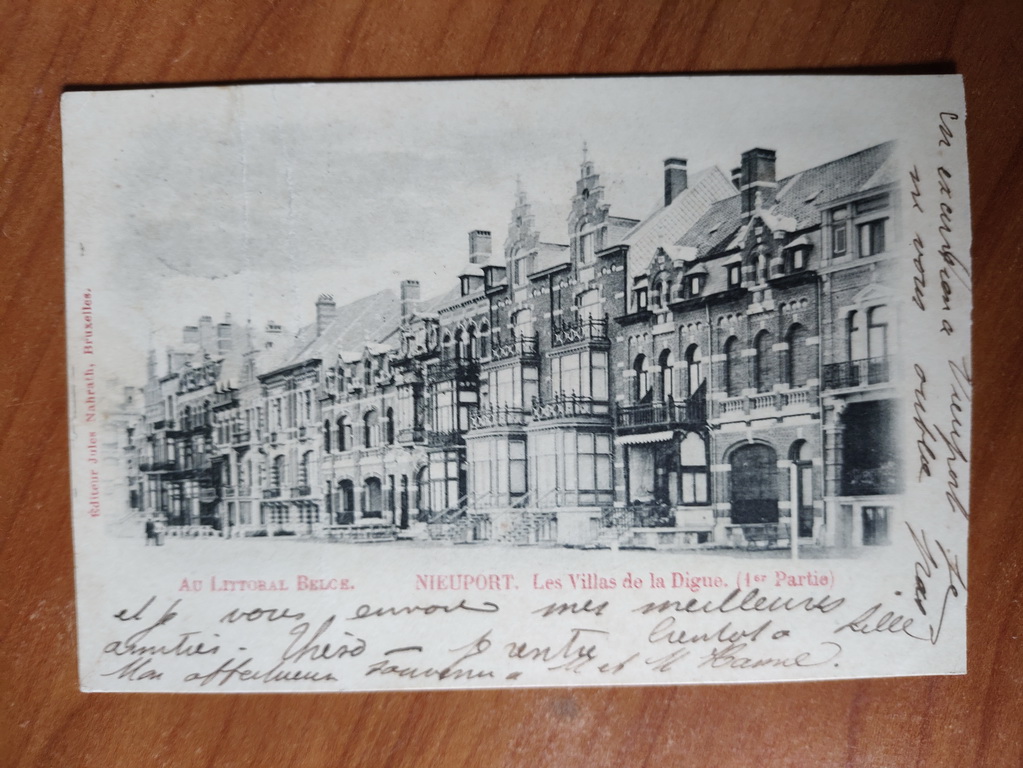 Éditeur Jules Nahrath, Bruxelles.
AU LITTORAL BELGE.
NIEUPORT. Les Villas de la Digue. (1er Partie)
En excursion a Nieuport je
ne vous oublie pas
et je vous envoie mes meilleures
amitiés. je rentre bientot a Lille
Mon affectueux souvenir a M et M